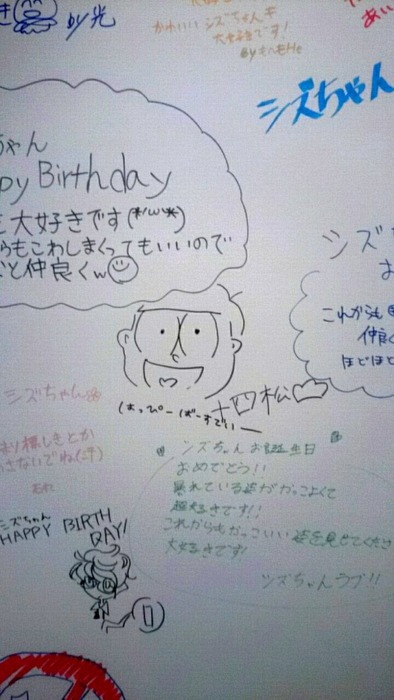 by 光
かわいい シズちゃん
大好きです!
シズちゃん
ちゃん
py Birthday
大好きです(*/ω\*)
らもこわしまくってもいいので
と仲良くw
シズ
お
これからも
仲良く
ほどほど
はっぴーばーすでぃー
十四松
シズちゃん
シズちゃん お誕生日
おめでとう!!
暴れている姿がかっこよくて
超好きです!!
これからもかっこいい姿を見せてくださ
大好きです!
シズちゃんラブ!!
シズちゃん
HAPPY BIRTH
DAY!